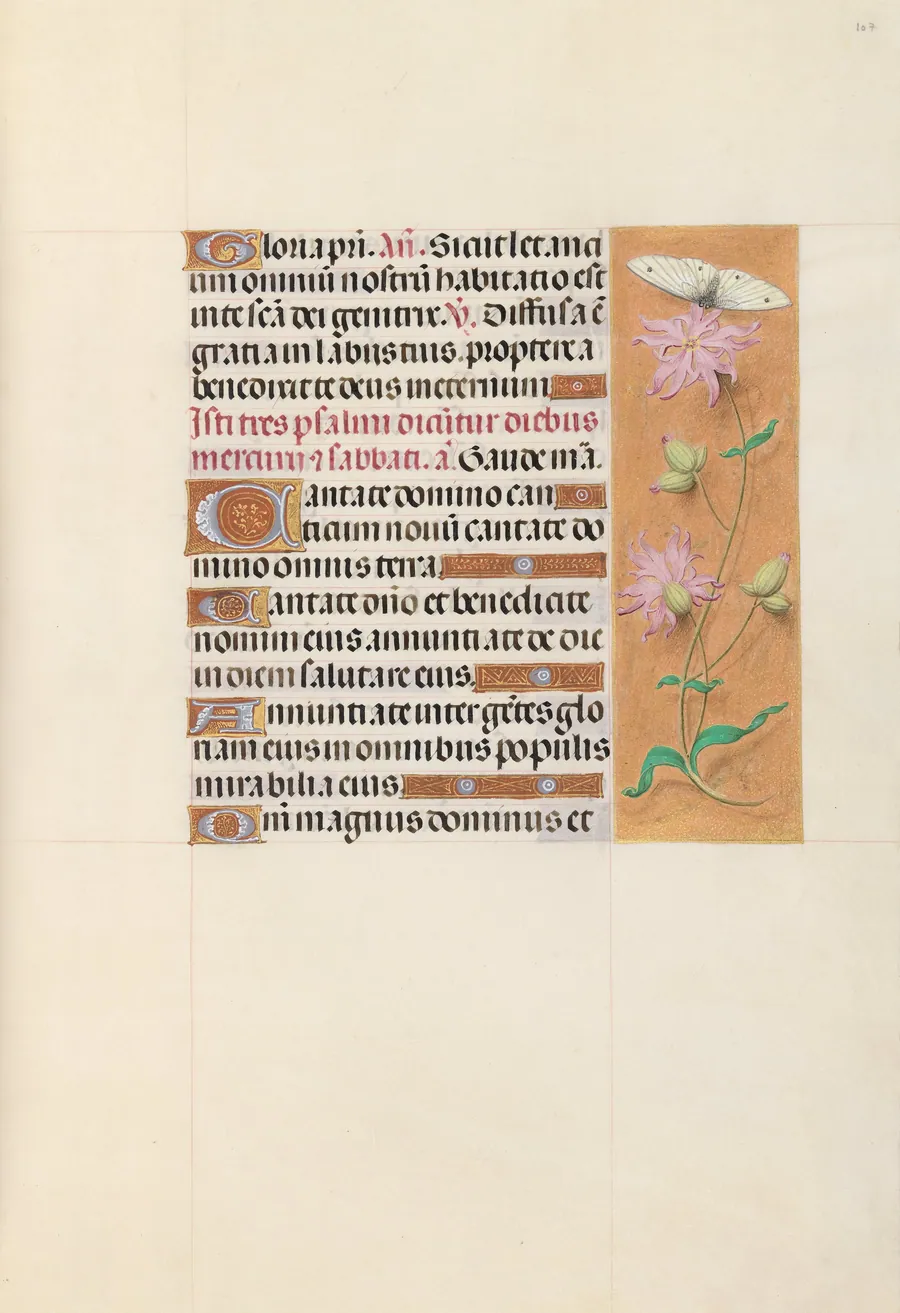 107
Gloria pri͂. An͂. Sicut letanci
um omniu͂ nostru͂ habitacio est
in te sc͂a dei genitrix. V͂. Diffusa e͂
gratia in labiis tuis. propterea
benedixit te deus in eternum
Isti tres psalmi dicu͂tur diebus
mercurii ⁊ sabbati. a͂. Gaude m͂a.
Cantate domino can
ticum nouu͂ cantate do
mino omnis terra.
Cantate dn͂o et benedicite
nomini eius annunti ate de die
in diem salutare eius.
Annuntiate inter ge͂tes glo
riam eius in omnibus populis
mirabilia eius.
Qm͂ magnus dominus et